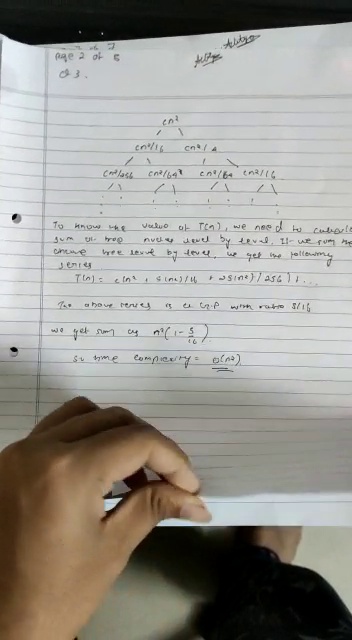 Page 2 of 5
Q 3.
cn²
cn²/16 cn²/4
cn²/256 cn²/64 cn²/64 cn²/16
To know the value of T(n), we need to calculate
sum of tree nodes level by level. If we sum the
above tree level by level, we get the following
series
T(n) = c(n² + 5(n²)/16 + 25(n²)/256) + ..
The above series is a G.P with ratio 5/16
we get sum as n²(1 - 5/16)
so time complexity = O(n²)